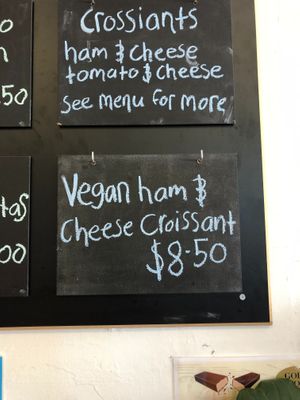 Crossiants
ham & cheese
tomato & cheese
see menu for more
50
Vegan ham &
Cheese Croissant
$8-50
tas
00